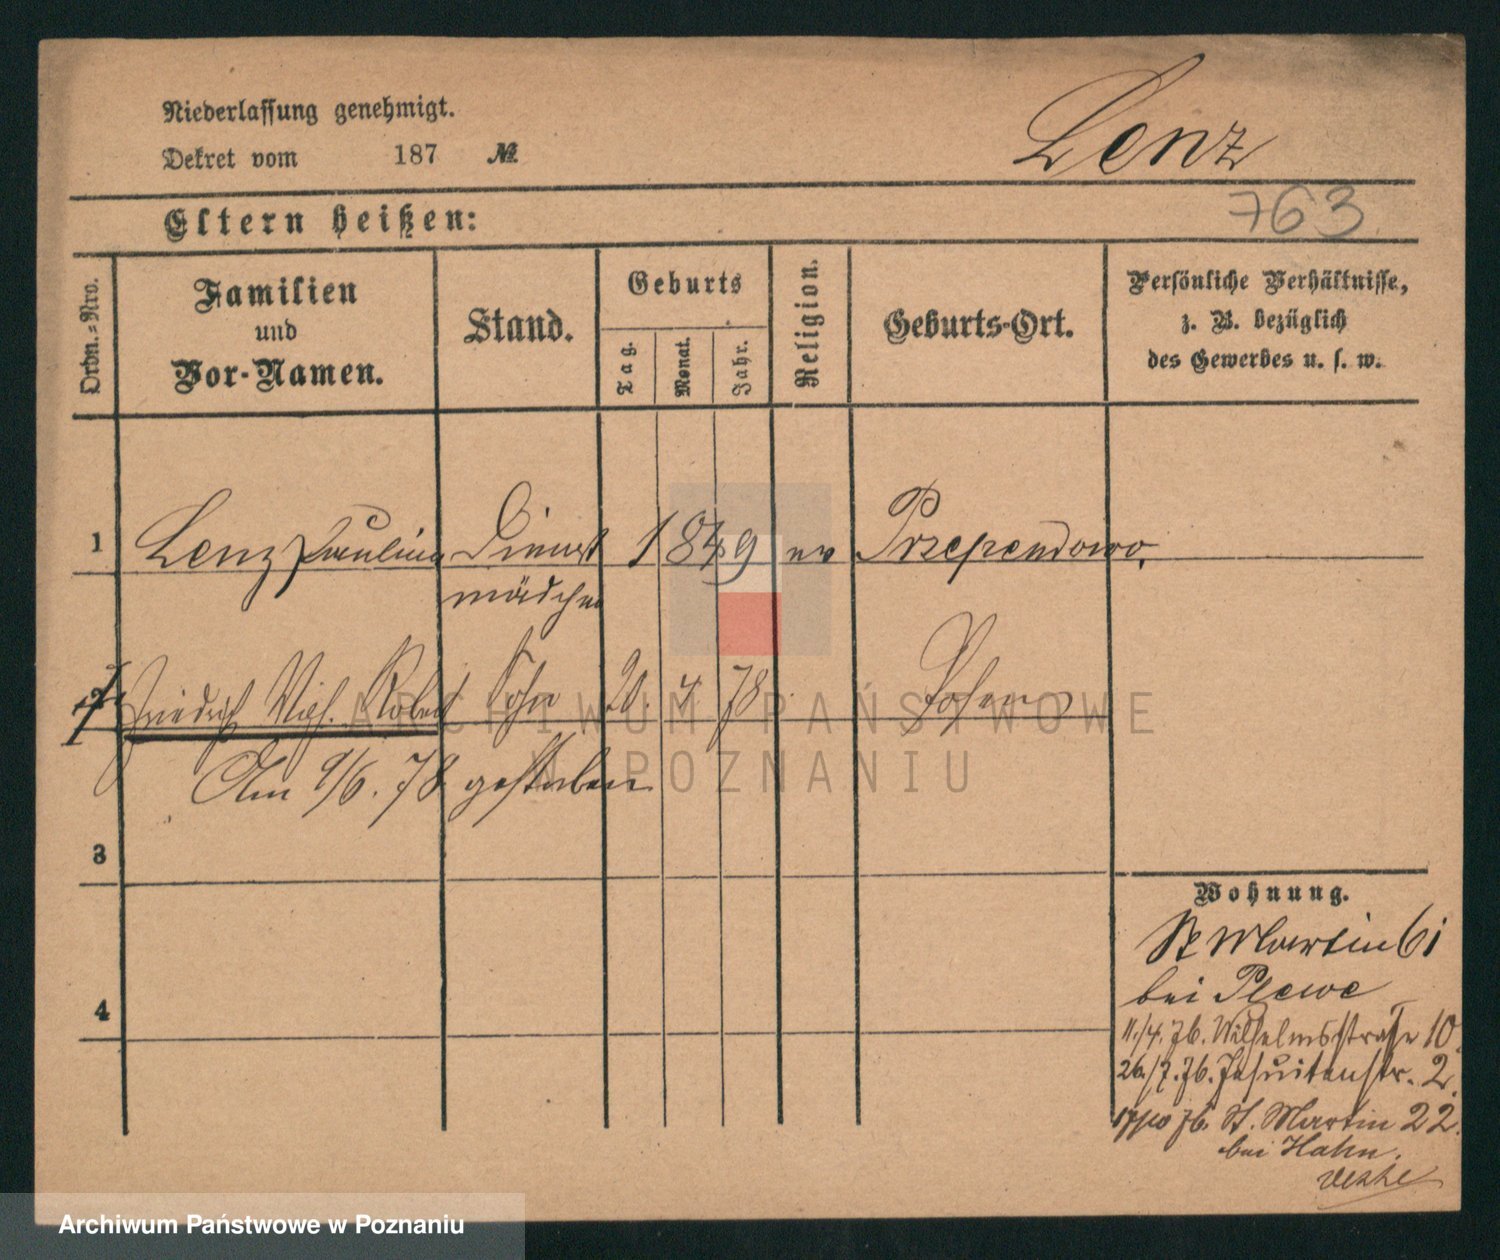 Niederlassung genehmigt.
Dekret vom 187 №
Lenz
763
Eltern heißen:
Ordn.=Nro.
Familien
und
Vor-Namen.
Stand.
Geburts
Tag.
Monat.
Jahr.
Religion.
Geburts-Ort.
Persönliche Verhältnisse,
z. B. bezüglich
des Gewerbes u. s. w.
1 Lenz Pauline Dienst 1849 ev Przependowo,
mädchen
2 Friedrich Wilh. Robert Sohn 20. 4. 78 Posen
Am 9/6. 78 gestorben
3
Wohnung.
St Martin 61
bei Plewe
4
11./4. 76. Wilhelmsstraße 10.
26./7. 76. Jesuitenstr. 2.
76. St. Martin 22.
bei Hahn.
ARCHIWUM PAŃSTWOWE
W POZNANIU
Archiwum Państwowe w Poznaniu